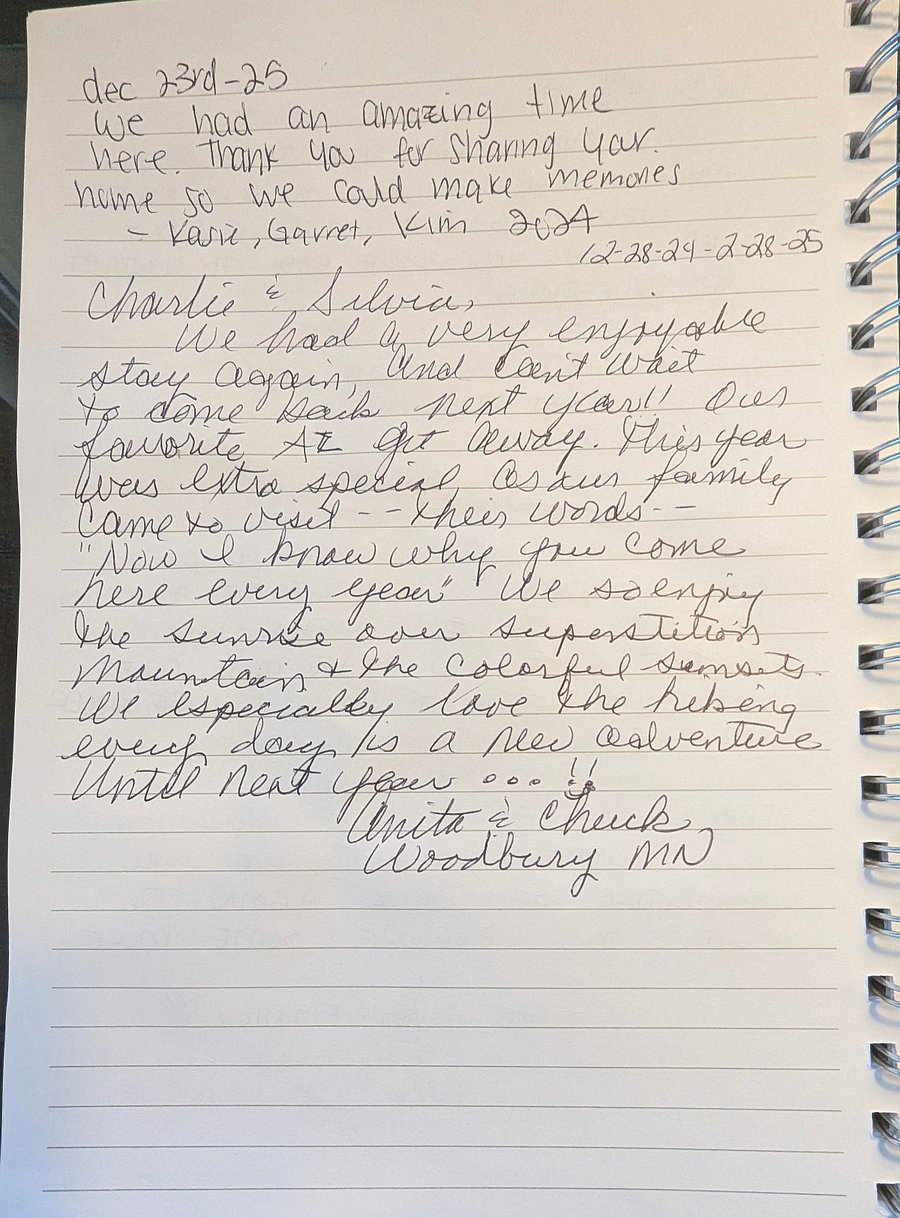 dec 23rd-25
We had an amazing time
here. Thank you for sharing your.
home so we could make memories
- Karie, Garret, Kim 2024
12-28-24-2-28-25
Charlie & Silvia,
We had a very enjoyable
stay again, and can't wait
to come back next year!! Our
favorite AZ get away. This year
was extra special as our family
came to visit -- their words --
"Now I know why you come
here every year" We so enjoy
the sunrise over Superstition
Mountain & the colorful sunsets.
We especially love the hiking
every day is a new adventure
Until next year ... !!
Anita & Chuck
Woodbury MN